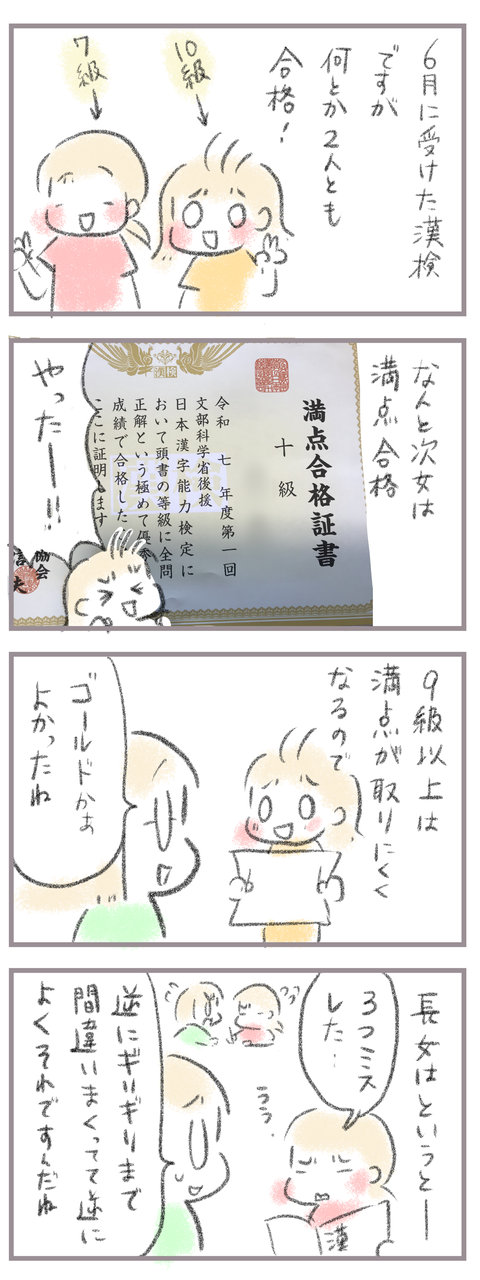 6月に受けた漢検
ですが
何とか2人とも
合格!
10級
7級
なんと次女は
満点合格
満点合格証書
十級
令和 七 年度第一回
文部科学省後援
日本漢字能力検定に
おいて頭書の等級に全問
正解という極めて優秀
成績で合格した
ここに証明します
漢検
協会
信夫
やったー!!
9級以上は
満点が取りにくく
なるので
ゴールドかぁ
よかったね
長女はというとー
3つミス
した…
漢
ううう.
逆にギリギリまで
間違いまくってて逆に
よくそれですんだね